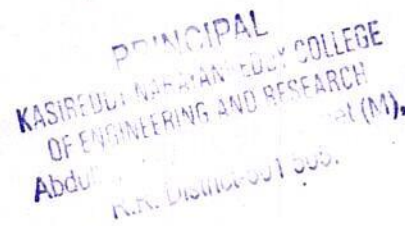 PRINCIPAL
KASIREDDY NARAYAN REDDY COLLEGE
OF ENGINEERING AND RESEARCH
(M),
R.R. District-501 505.